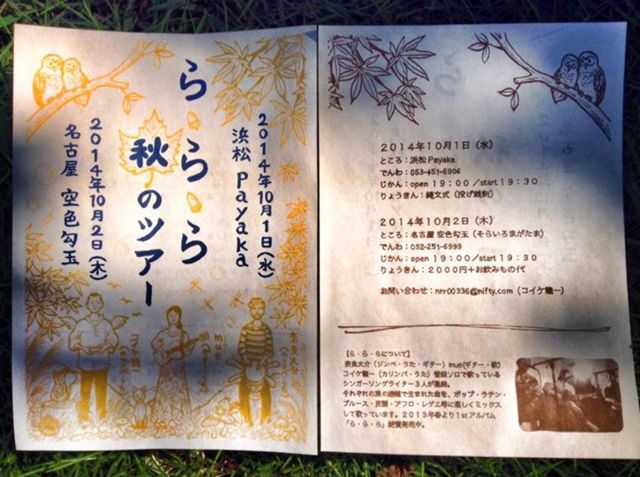 ら・ら・ら
秋のツアー
2014年10月1日(水)
浜松 Payaka
2014年10月2日(木)
名古屋 空色勾玉
mue
2014年10月1日（水）
ところ：浜松 Payaka
でんわ：053-451-6906
じかん：open 19：00／start 19：30
りょうきん：縄文式（投げ銭制）
2014年10月2日（木）
ところ：名古屋 空色勾玉（そらいろまがたま）
でんわ：052-251-6999
じかん：open 19：00／start 19：30
りょうきん：2000円＋お飲みもの代
お問い合わせ：nrr00336@nifty.com（コイケ龍一）
【ら・ら・らについて】
奈良大介（ジンベ・うた・ギター）mue(ギター・歌)
コイケ龍一（カリンバ・うた）普段ソロで歌っている
シンガーソングライター3人が集結。
それぞれの旅の過程で生まれた曲を、ポップ・ラテン・
ブルース・民謡・アフロ・レゲエ等に楽しくミックス
して歌っています。2013年春より1stアルバム
「ら・ら・ら」絶賛発売中。